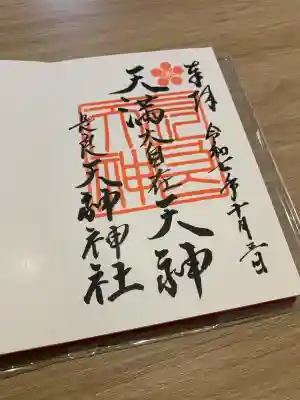 奉拝
令和七年十月三日
天満大自在天神
長良天神神社